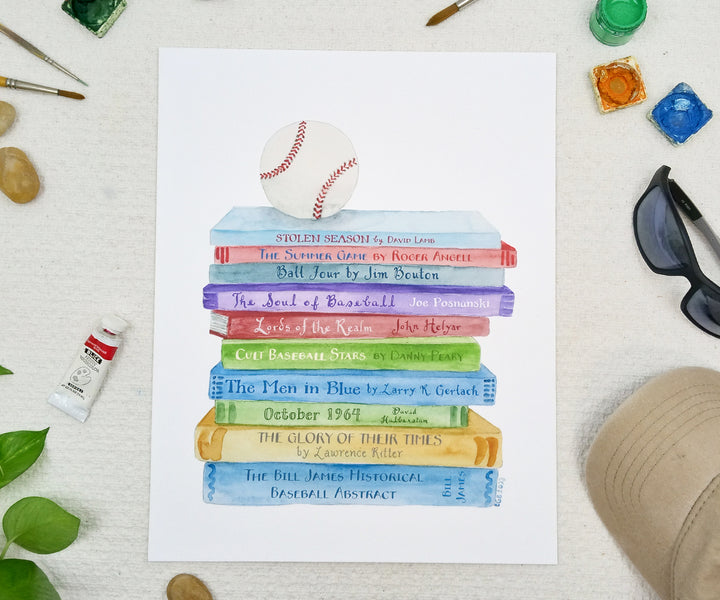 STOLEN SEASON by DAVID LAMB
THE SUMMER GAME BY ROGER ANGELL
Ball Four by Jim Bouton
The Soul of Baseball Joe Posnanski
Lords of the Realm John Helyar
CULT BASEBALL STARS BY DANNY PEARY
The Men in Blue by Larry R Gerlach
October 1964 David Halberstam
THE GLORY OF THEIR TIMES
by Lawrence Ritter
THE BILL JAMES HISTORICAL
BASEBALL ABSTRACT
BILL JAMES